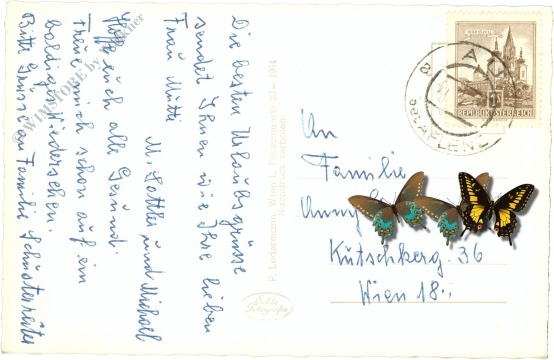 Die besten Urlaubsgrüsse
sendet Ihnen wie Ihre lieben
Frau Mutti
M. und Michael
Hoffe euch alle Gesund.
Freue mich schon auf ein
baldiges Wiedersehen.
Bitte Grüsse an Familie
WIMSTORE by
P. Ledermann, Wien I,
Nachdruck verboten!
Echte
Fotografie
REPUBLIK ÖSTERREICH
AFLENZ
An
Familie
Kutschkerg. 36
Wien 18.